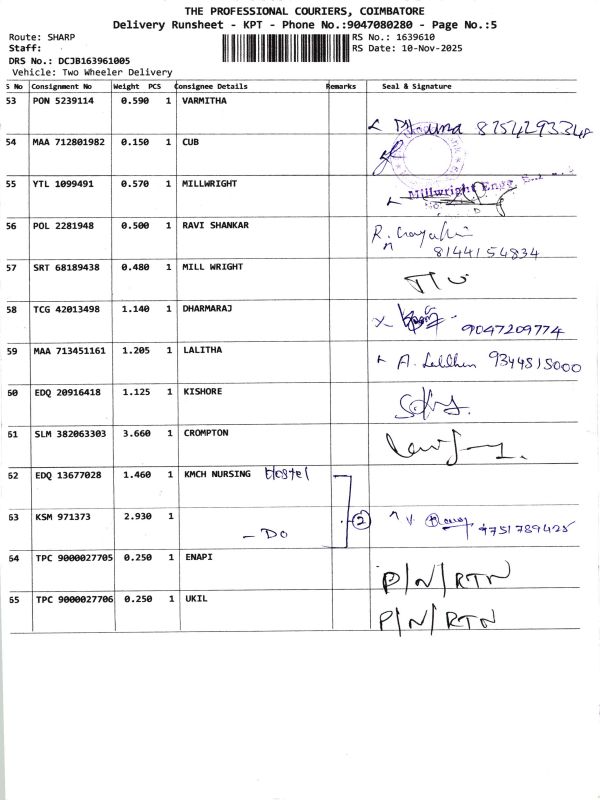 THE PROFESSIONAL COURIERS, COIMBATORE
Delivery Runsheet - KPT - Phone No.:9047080280 - Page No.:5
Route: SHARP
RS No.: 1639610
Staff:
RS Date: 10-Nov-2025
DRS No.: DCJB163961005
Vehicle: Two Wheeler Delivery
S No Consignment No Weight PCS Consignee Details Remarks Seal & Signature
53 PON 5239114 0.590 1 VARMITHA
8754293348
54 MAA 712801982 0.150 1 CUB
55 YTL 1099491 0.570 1 MILLWRIGHT
Millwright Engg.
56 POL 2281948 0.500 1 RAVI SHANKAR
8144154834
57 SRT 68189438 0.480 1 MILL WRIGHT
58 TCG 42013498 1.140 1 DHARMARAJ
9047209774
59 MAA 713451161 1.205 1 LALITHA
9344515000
60 EDQ 20916418 1.125 1 KISHORE
61 SLM 382063303 3.660 1 CROMPTON
62 EDQ 13677028 1.460 1 KMCH NURSING Hostel
63 KSM 971373 2.930 1
- Do
2
9751789425
64 TPC 9000027705 0.250 1 ENAPI
P/N/RTN
65 TPC 9000027706 0.250 1 UKIL
P/N/RTN